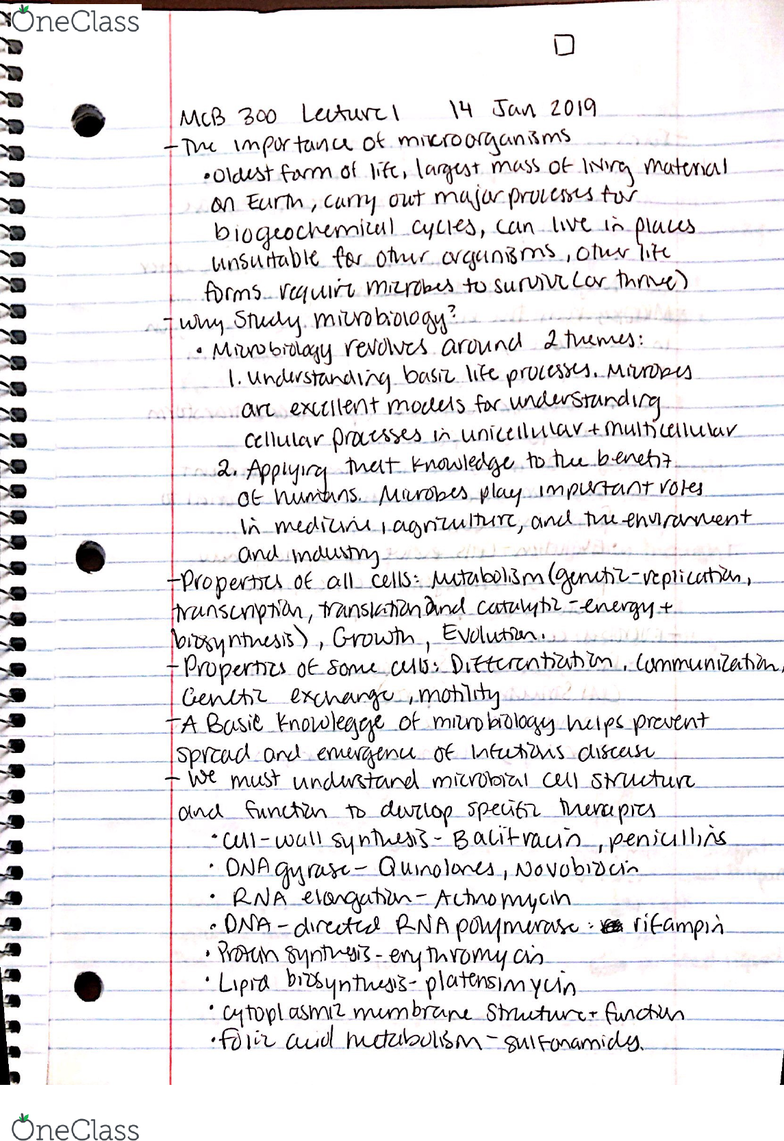 OneClass
MCB 300 Lecture 1 14 Jan 2019
- The importance of microorganisms
• Oldest form of life, largest mass of living material
on Earth, carry out major processes for
biogeochemical cycles, can live in places
unsuitable for other organisms, other life
forms require microbes to survive (or thrive)
- Why study microbiology?
• Microbiology revolves around 2 themes:
1. Understanding basic life processes. Microbes
are excellent models for understanding
cellular processes in unicellular + multicellular
2. Applying that knowledge to the benefit
of humans. Microbes play important roles
in medicine, agriculture, and the environment
and industry
- Properties of all cells: Metabolism (genetic - replication,
transcription, translation and catalytic - energy +
biosynthesis), Growth, Evolution.
- Properties of some cells: Differentiation, Communication,
Genetic exchange, motility
- A Basic Knowlegge of microbiology helps prevent
spread and emergence of infectious disease
- We must understand microbial cell structure
and function to develop specific therapies
• Cell-wall synthesis - Bacitracin, penicillins
• DNA gyrase - Quinolones, Novobiocin
• RNA elongation - Actinomycin
• DNA-directed RNA polymerase: rifampin
• Protein synthesis - erythromycin
• Lipid biosynthesis - platensimycin
• cytoplasmic membrane structure + function
• folic acid metabolism - sulfonamides.
OneClass